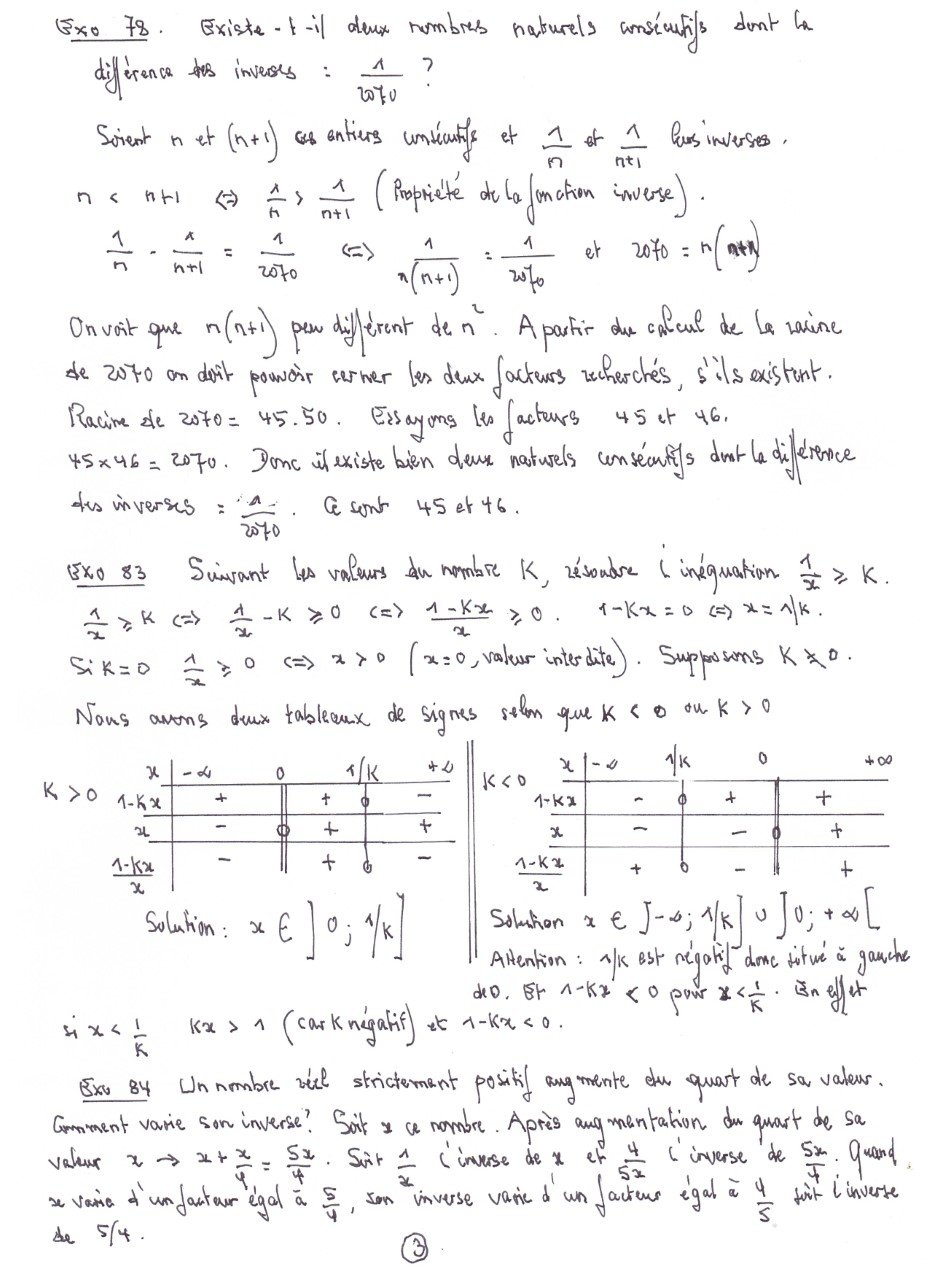 Exo 78. Existe-t-il deux nombres naturels consécutifs dont la
différence des inverses : 1/2070 ?
Soient n et (n+1) ces entiers consécutifs et 1/n et 1/n+1 leurs inverses.
n < n+1 <=> 1/n > 1/n+1 (Propriété de la fonction inverse).
1/n - 1/n+1 = 1/2070 <=> 1/n(n+1) = 1/2070 et 2070 = n(n+1)
On voit que n(n+1) peu différent de n². A partir du calcul de la racine
de 2070 on doit pouvoir cerner les deux facteurs recherchés, s'ils existent.
Racine de 2070 = 45.50. Essayons les facteurs 45 et 46.
45x46 = 2070. Donc il existe bien deux naturels consécutifs dont la différence
des inverses = 1/2070. Ce sont 45 et 46.
Exo 83 Suivant les valeurs du nombre K, résoudre l'inéquation 1/x ⩾ K.
1/x ⩾ K <=> 1/x - K ⩾ 0 <=> 1-Kx/x ⩾ 0. 1-Kx = 0 <=> x = 1/K.
Si K=0 1/x ⩾ 0 <=> x > 0 (x=0, valeur interdite). Supposons K ≠ 0.
Nous avons deux tableaux de signes selon que K < 0 ou K > 0
K > 0
x -∞ 0 1/K +∞
1-Kx + + 0 -
x - 0 + +
1-Kx/x - + 0 -
Solution : x ∈ ]0 ; 1/K]
K < 0
x -∞ 1/K 0 +∞
1-Kx - 0 + +
x - - 0 +
1-Kx/x + 0 - +
Solution x ∈ ]-∞ ; 1/K] ∪ ]0 ; +∞[
Attention : 1/K est négatif donc situé à gauche
de 0. Et 1-Kx < 0 pour x < 1/K. En effet
si x < 1/K Kx > 1 (car K négatif) et 1-Kx < 0.
Exo 84 Un nombre réel strictement positif augmente du quart de sa valeur.
Comment varie son inverse ? Soit x ce nombre. Après augmentation du quart de sa
valeur x → x + x/4 = 5x/4. Soit 1/x l'inverse de x et 4/5x l'inverse de 5x/4. Quand
x varie d'un facteur égal à 5/4, son inverse varie d'un facteur égal à 4/5 soit l'inverse
de 5/4.
3